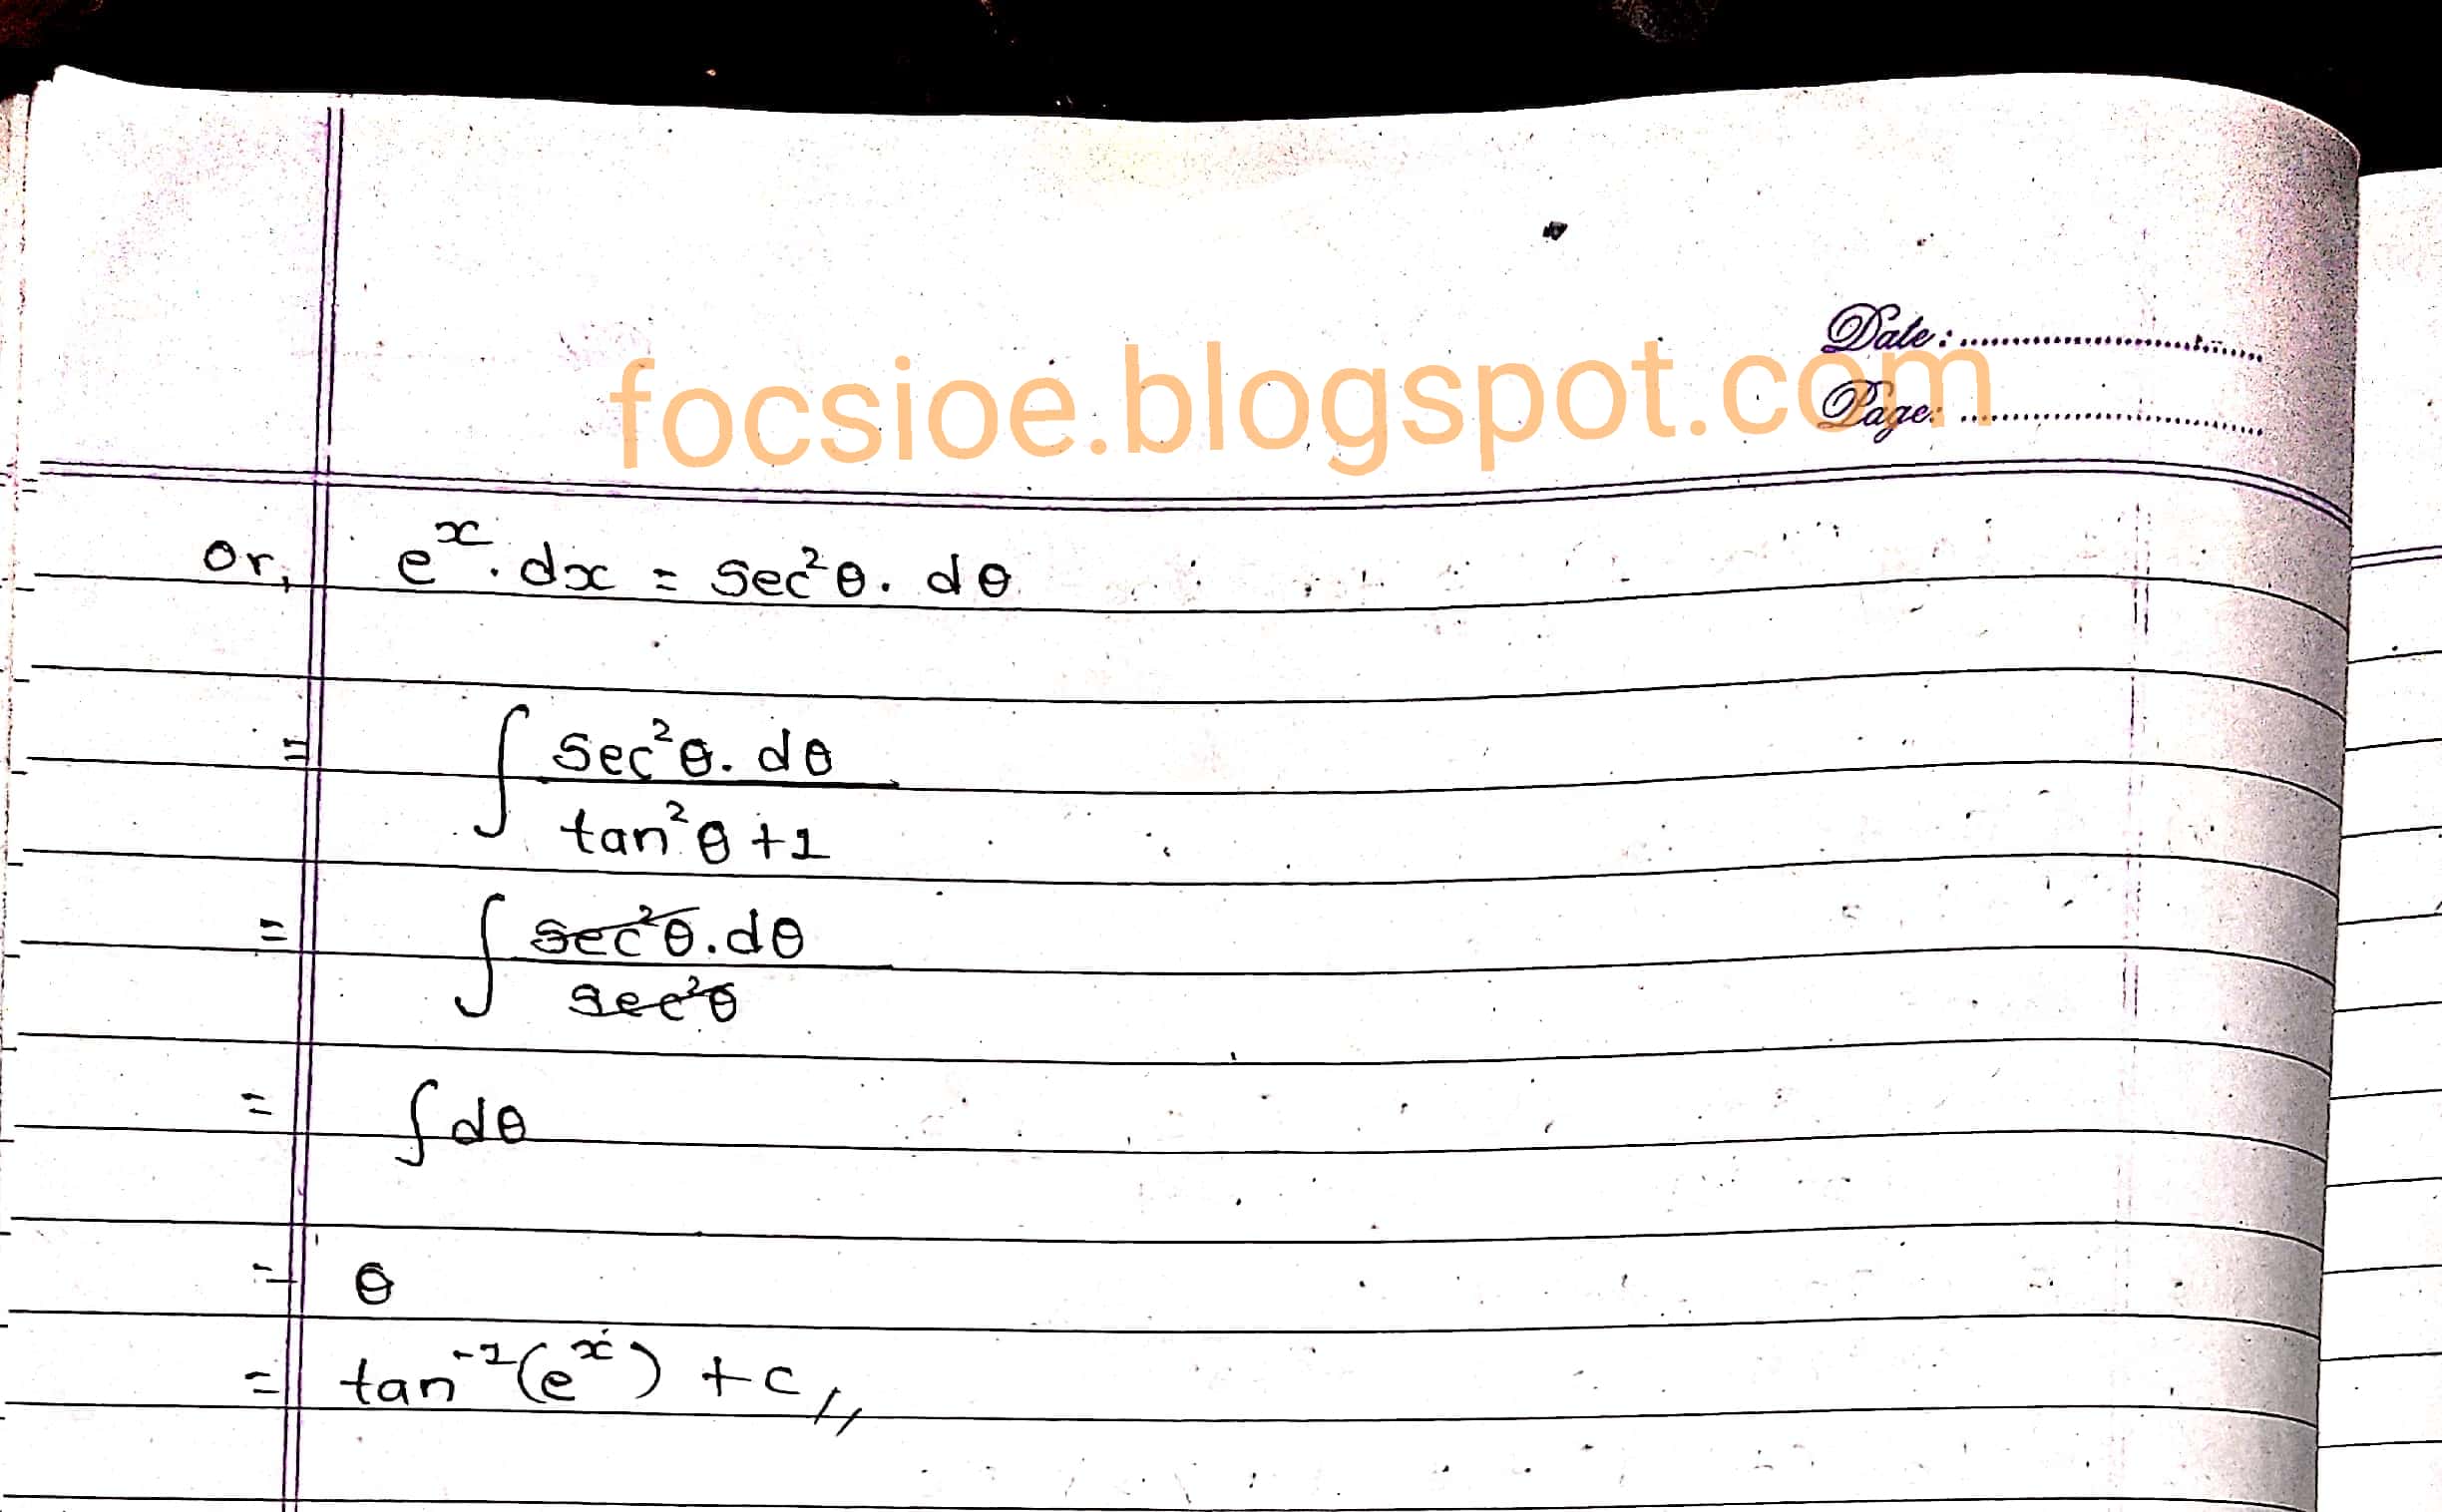 Date: ........................
focsioe.blogspot.com
Page: ........................
or, e^x . dx = sec²θ . dθ
= ∫ sec²θ . dθ
tan²θ + 1
= ∫ sec²θ . dθ
sec²θ
= ∫ dθ
= θ
= tan⁻¹(e^x) + c //